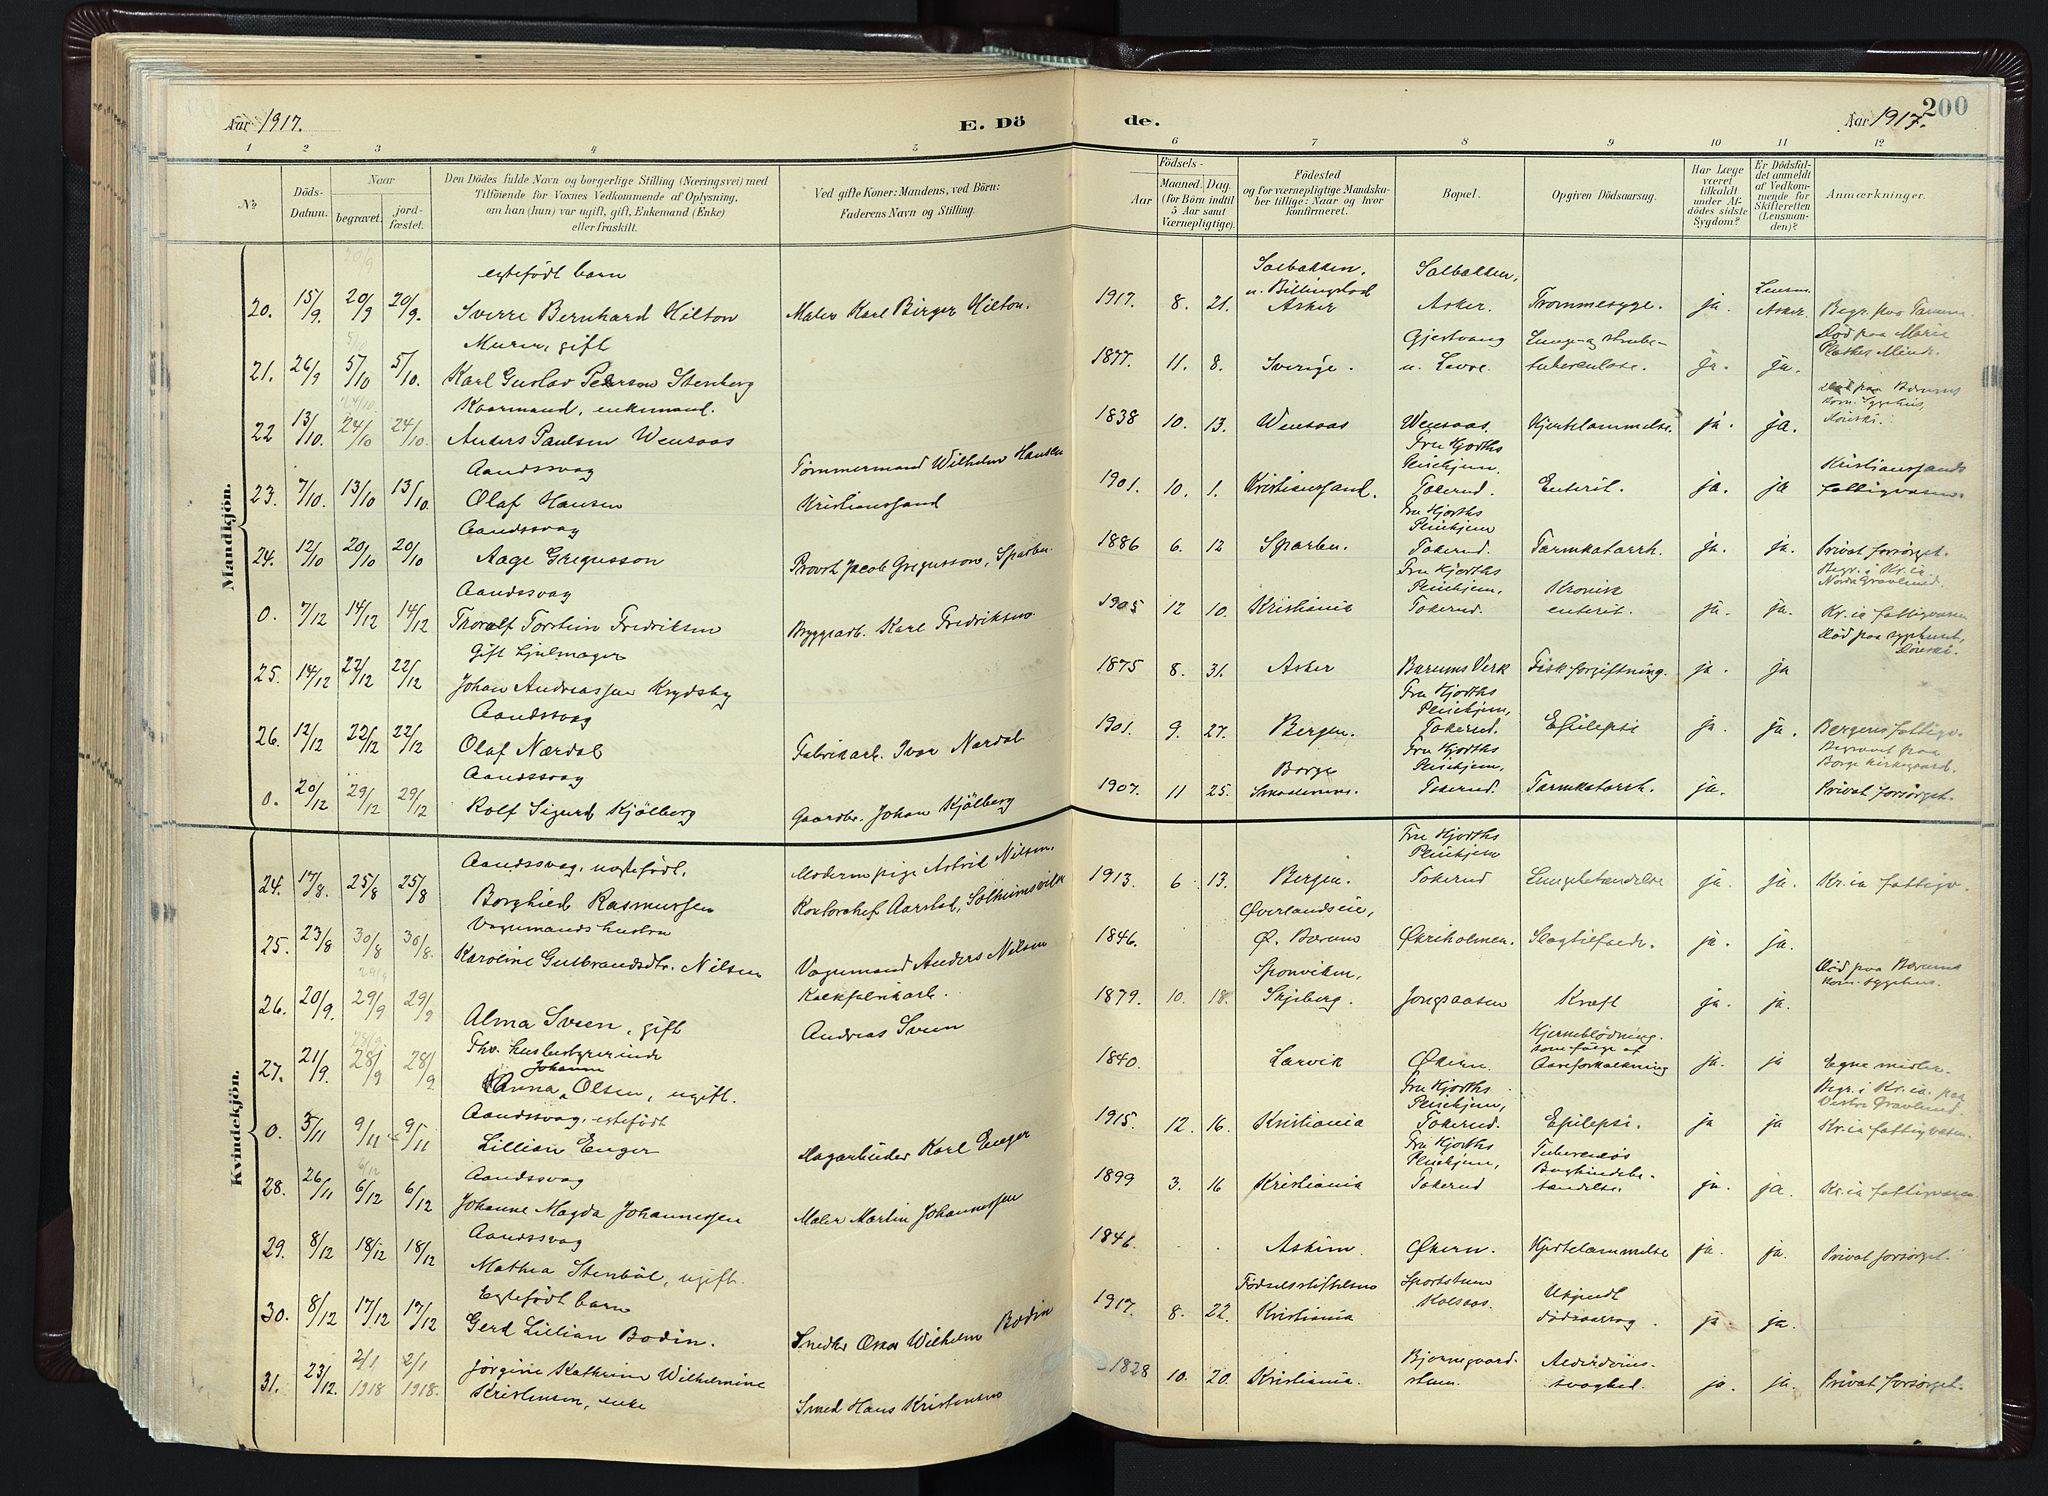 Aar 1917.
E. Dö
de.
Aar 1917.
200
1 2 3 4 5 6 7 8 9 10 11 12
No.
Döds-Datum.
Naar
begravet.
jord-fæstet.
Den Dödes fulde Navn og borgerlige Stilling (Næringsvei) med
Tilföiende for Voxnes Vedkommende af Oplysning,
om han (hun) var ugift, gift, Enkemand (Enke)
eller fraskilt.
Ved gifte Koner: Mandens, ved Börn:
Faderens Navn og Stilling.
Födsels-
Aar
Maaned. Dag.
(for Börn indtil
5 Aar samt
Værnepligtige).
Födested
og for værnepligtige Mandska-
ber tillige: Naar og hvor
konfirmeret.
Bopæl.
Opgiven Dödsaarsag.
Har Læge
været
tilkaldt
under Af-
dödes sidste
Sygdom?
Er Dödsfal-
det anmeldt
af Vedkom-
mende for
Skifteretten
(Lensman-
den)?
Anmærkninger.
Mandkjön.
20/9
egtefödt barn
Solbakken, Solbakken,
20. 15/9. 20/9 20/9. Sverre Bernhard Hilton Maler Karl Birger Hilton. 1917. 8. 21. u. Billingstad Asker Asker. Trommesyge. ja. Lensm. Asker. Begr. paa Tanum.
Murer, gift
Gjestvang Lunge- og strube-
Död paa Marie Plathes Minde.
21. 26/9 5/10 5/10. Karl Gustav Person Stenberg 1877. 11. 8. Sverige. u. Levre. tuberculose. ja. ja.
24/10.
Kaarmand, enkemand.
Död paa Bærums kom. Sygehus,
22 13/10. 24/10 24/10. Anders Paulsen Wensaas 1838 10. 13. Wensaas Wensaas. Hjertelammelse. ja. ja.
Aandssvag
Tömmermand Wilhelm Hansen
Fru Hjorths Pleiehjem,
Kristianssands
23. 7/10. 13/10 13/10. Olaf Hansen Kristianssand 1901. 10. 1. Kristianssand. Tokerud. Enterit. ja. ja fattigvæsen.
Aandssvag
Fru Hjorths Pleiehjem
24. 12/10 20/10 20/10 Aage Gregusson Provst Jacob Gregusson, Sparbu. 1886 6. 12 Sparbu. Tokerud. Tarmkatarrh. ja. ja. Privat forsörget.
Aandssvag
Fru Hjorths Pleiehjem, Kronisk
Begr. i Kr.ia. Nordre Gravlund.
0. 7/12 14/12 14/12 Thoralf Torstein Fredriksen Bryggearb. Karl Fredriksen 1905 12 10. Kristiania Tokerud. enterit. ja. ja. Kr.ia fattigvæsen
Gift Hjulmager
Död paa sygehuset,
25. 14/12 22/12 22/12 Johan Andreassen Krydsby 1875 8. 31. Asker Bærums Verk Fiskforgiftning. ja. ja
Aandssvag
Fru Hjorths Pleiehjem,
26. 12/12 22/12 22/12 Olaf Nærdal Fabrikarb. Ivar Nærdal 1901. 9. 27. Bergen. Tokerud. Epilepsi ja. ja. Bergens fattigv.
Aandssvag
Borge
Fru Hjorths Pleiehjem,
Begravet paa Borge kirkegaard.
0. 20/12 29/12 29/12 Rolf Sigurd Kjölberg Gaardbr. Johan Kjölberg 1907. 11 25. Smaalenene. Tokerud. Tarmkatarrh. ja. Privat forsörget.
Kvindekjön.
Aandssvag, uegtefödt.
Moderen pige Astrid Nilsen.
Fru Hjorths Pleiehjem
24. 17/8. 25/8 25/8 Borghild Rasmussen Kontorchef Aarstad, Solheimsvik 1913. 6 13. Bergen. Tokerud Lungebetændelse ja. ja. Kr.ia fattigv.
Vognmands hustru
Øverlandseie,
25. 23/8 30/8 30/8. Karoline Gulbrandsdtr. Nilsen Vognmand Anders Nilsen 1846. Ø. Bærum Økriholmen. Slagtilfælde. ja. ja.
29/9
Kalkfabrikarb.
Sponviken,
Död paa Bærums kom. sygehus.
26. 20/9. 29/9 29/9 Alma Sveen, gift Andreas Sveen 1879. 10. 18. Skjeberg. Jongsaasen Kræft ja. ja.
Fhv. husbestyrerinde
Hjerneblödning som fölge af
27. 21/9. 28/9 28/9 Anna Johanne Olsen, ugift. 1840. Larvik Økern. Aareforkalkning ja. ja Egne midler.
Aandssvag, egtefödt
Fru Hjorths Pleiehjem,
Begr. i Kr.ia. paa Vestre Gravlund.
0. 3/11 9/11 9/11 Lillian Enger Lagerbuder Karl Enger 1915. 12. 16. Kristiania Tokerud. Epilepsi. ja ja Kr.ia fattigvæsen.
6/12
Aandssvag
Fru Hjorths Pleiehjem, Tuberculös Bughindebe-
28. 26/11 6/12 6/12 Johanne Magda Johannessen Maler Martin Johannessen 1899 3. 16 Kristiania Tokerud tændelse. ja. ja. Kr.ia fattigvæsen
Aandssvag
29. 8/12 18/12 18/12 Mathea Stenböl, ugift. 1846. Askim. Økern. Hjertelammelse ja. ja. Privat forsörget.
Egtefödt barn
Födselsstiftelsen Sportstuen Ukjendt
30. 8/12 17/12 17/12 Gerd Lillian Bodin. Smed Oscar Wilhelm Bodin 1917. 8. 22. Kristiania Kolsaas. dödsaarsag ja. ja.
Jörgine Kathrine Wilhelmine
Bjerregaard- Alderdoms-
31. 23/12. 2/1 1918 2/1 1918. Kristensen, enke Smed Hans Kristensen 1828 10. 20. Kristiania. stuen. svaghed. ja. ja. Privat forsörget.